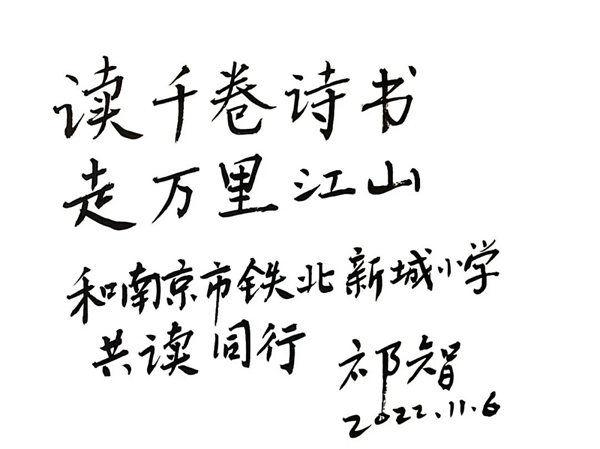 读千卷诗书
走万里江山
和南京市铁北新城小学
共读同行
祁智
2022.11.6